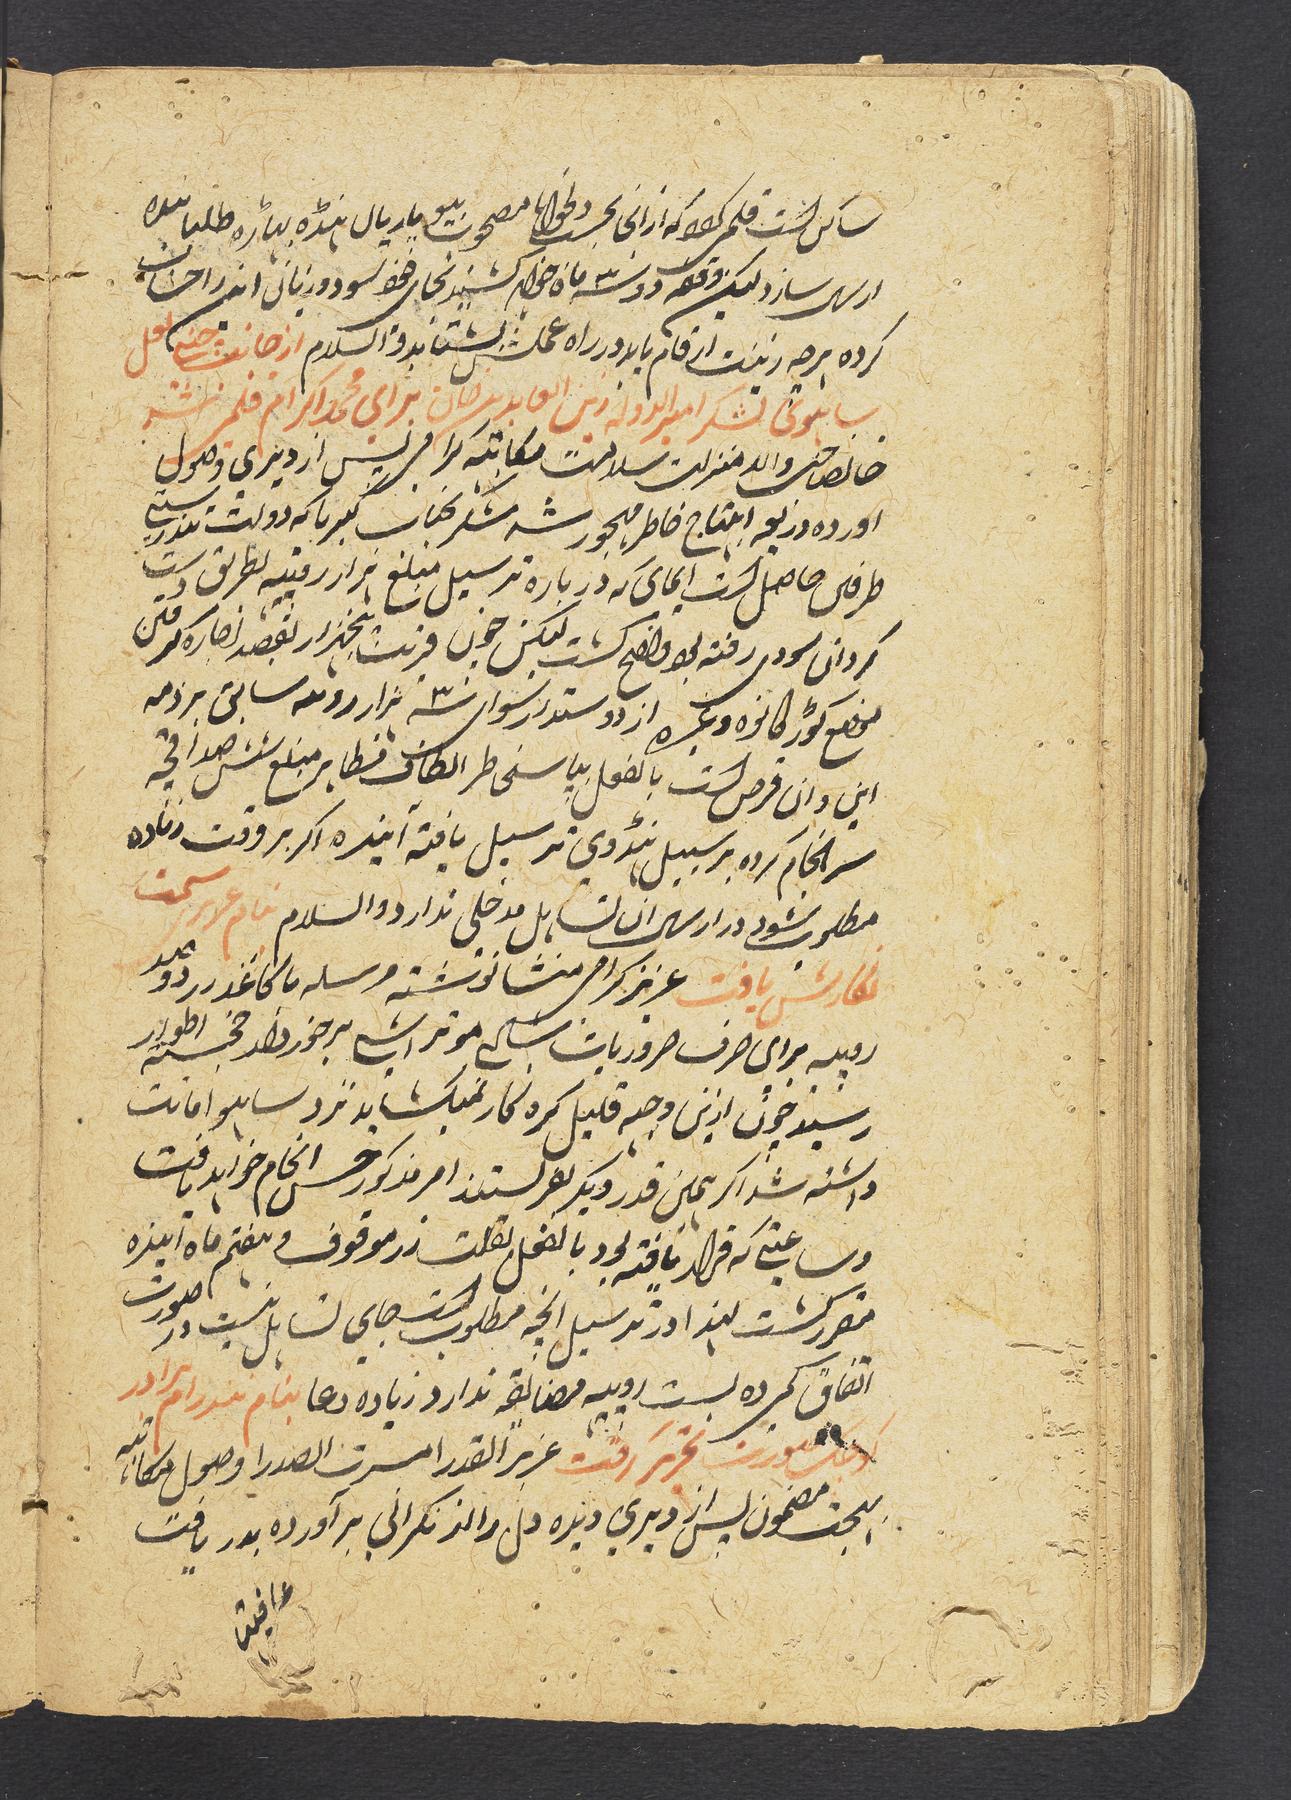 ساکن است قلمی کالا که از انجا بحسب دلخواه مصحوب بیوپاریال هنڈه بهاڑه طلبانیده
ارسال سازد لیکن وقفه دو سه ماه خواهد کشید بجای خود سود و زیان اندراجات
کرده هرچه زینت ارقام یابد در راه عملش بشتابد والسلام از جانب
ساهوی لشکر امیرالدوله زین العابدین خان برای محمد اکرام قلمی شد
خانصاحب والا منزلت سلامت مکاتبه گرامی پس از دیری وصول
اورده ذریعه ابتهاج خاطر مهجور شد شکر بجناب کبریا که دولت تندرستی
طرفین حاصل است ایمای که در باره ترسیل مبلغ هزار روپیه بطریق دست
گردان سودی رفته بود واضح گشت لیکن چون قریب پنجهزار
موضع وغیره از دوستدار سوای سه هزار روپیه سابق بر ذمه
این و ان قرض است بالفعل بپاسخاطر الطاف مظاهر مبلغ ششصد روپیه
سرانجام کرده بر سبیل هنڈوی ترسیل یافته آینده اگر بر وقت زیاده
مطلوب شود در ارسال ان تساهل مدخلی ندارد والسلام بنام عزیزی سمت
نگارش یافت عزیز گرامی منشا نوشته مرسله با کاغذ زر دو صد
روپیه برای صرف ضروریات شادی موتراشی برخوردار خجسته اطوار
رسید چون ازین وجه قلیل گره کار نمیکشاید نزد ساهو امانت
داشته شد اگر همین قدر دیگر بفرستند امر مذکور حسن انجام خواهد یافت
و ساعتی که قرار یافته بود بالفعل بعلت زر موقوف و هفتم ماه آینده
مقرر گشت لهذا در ترسیل انچه مطلوب است جای تساهل نیست در صورت
اتفاق کمی ده بست روپیه مضایقه ندارد زیاده دعا بنام برادر
کوچک صورت تحریر گرفت عزیز القدر امسرت الصدرا وصول مکاتبه
بهجت مضمون پس از دیری دیده دل را از نگرانی برآورده بدریافت
عافیت